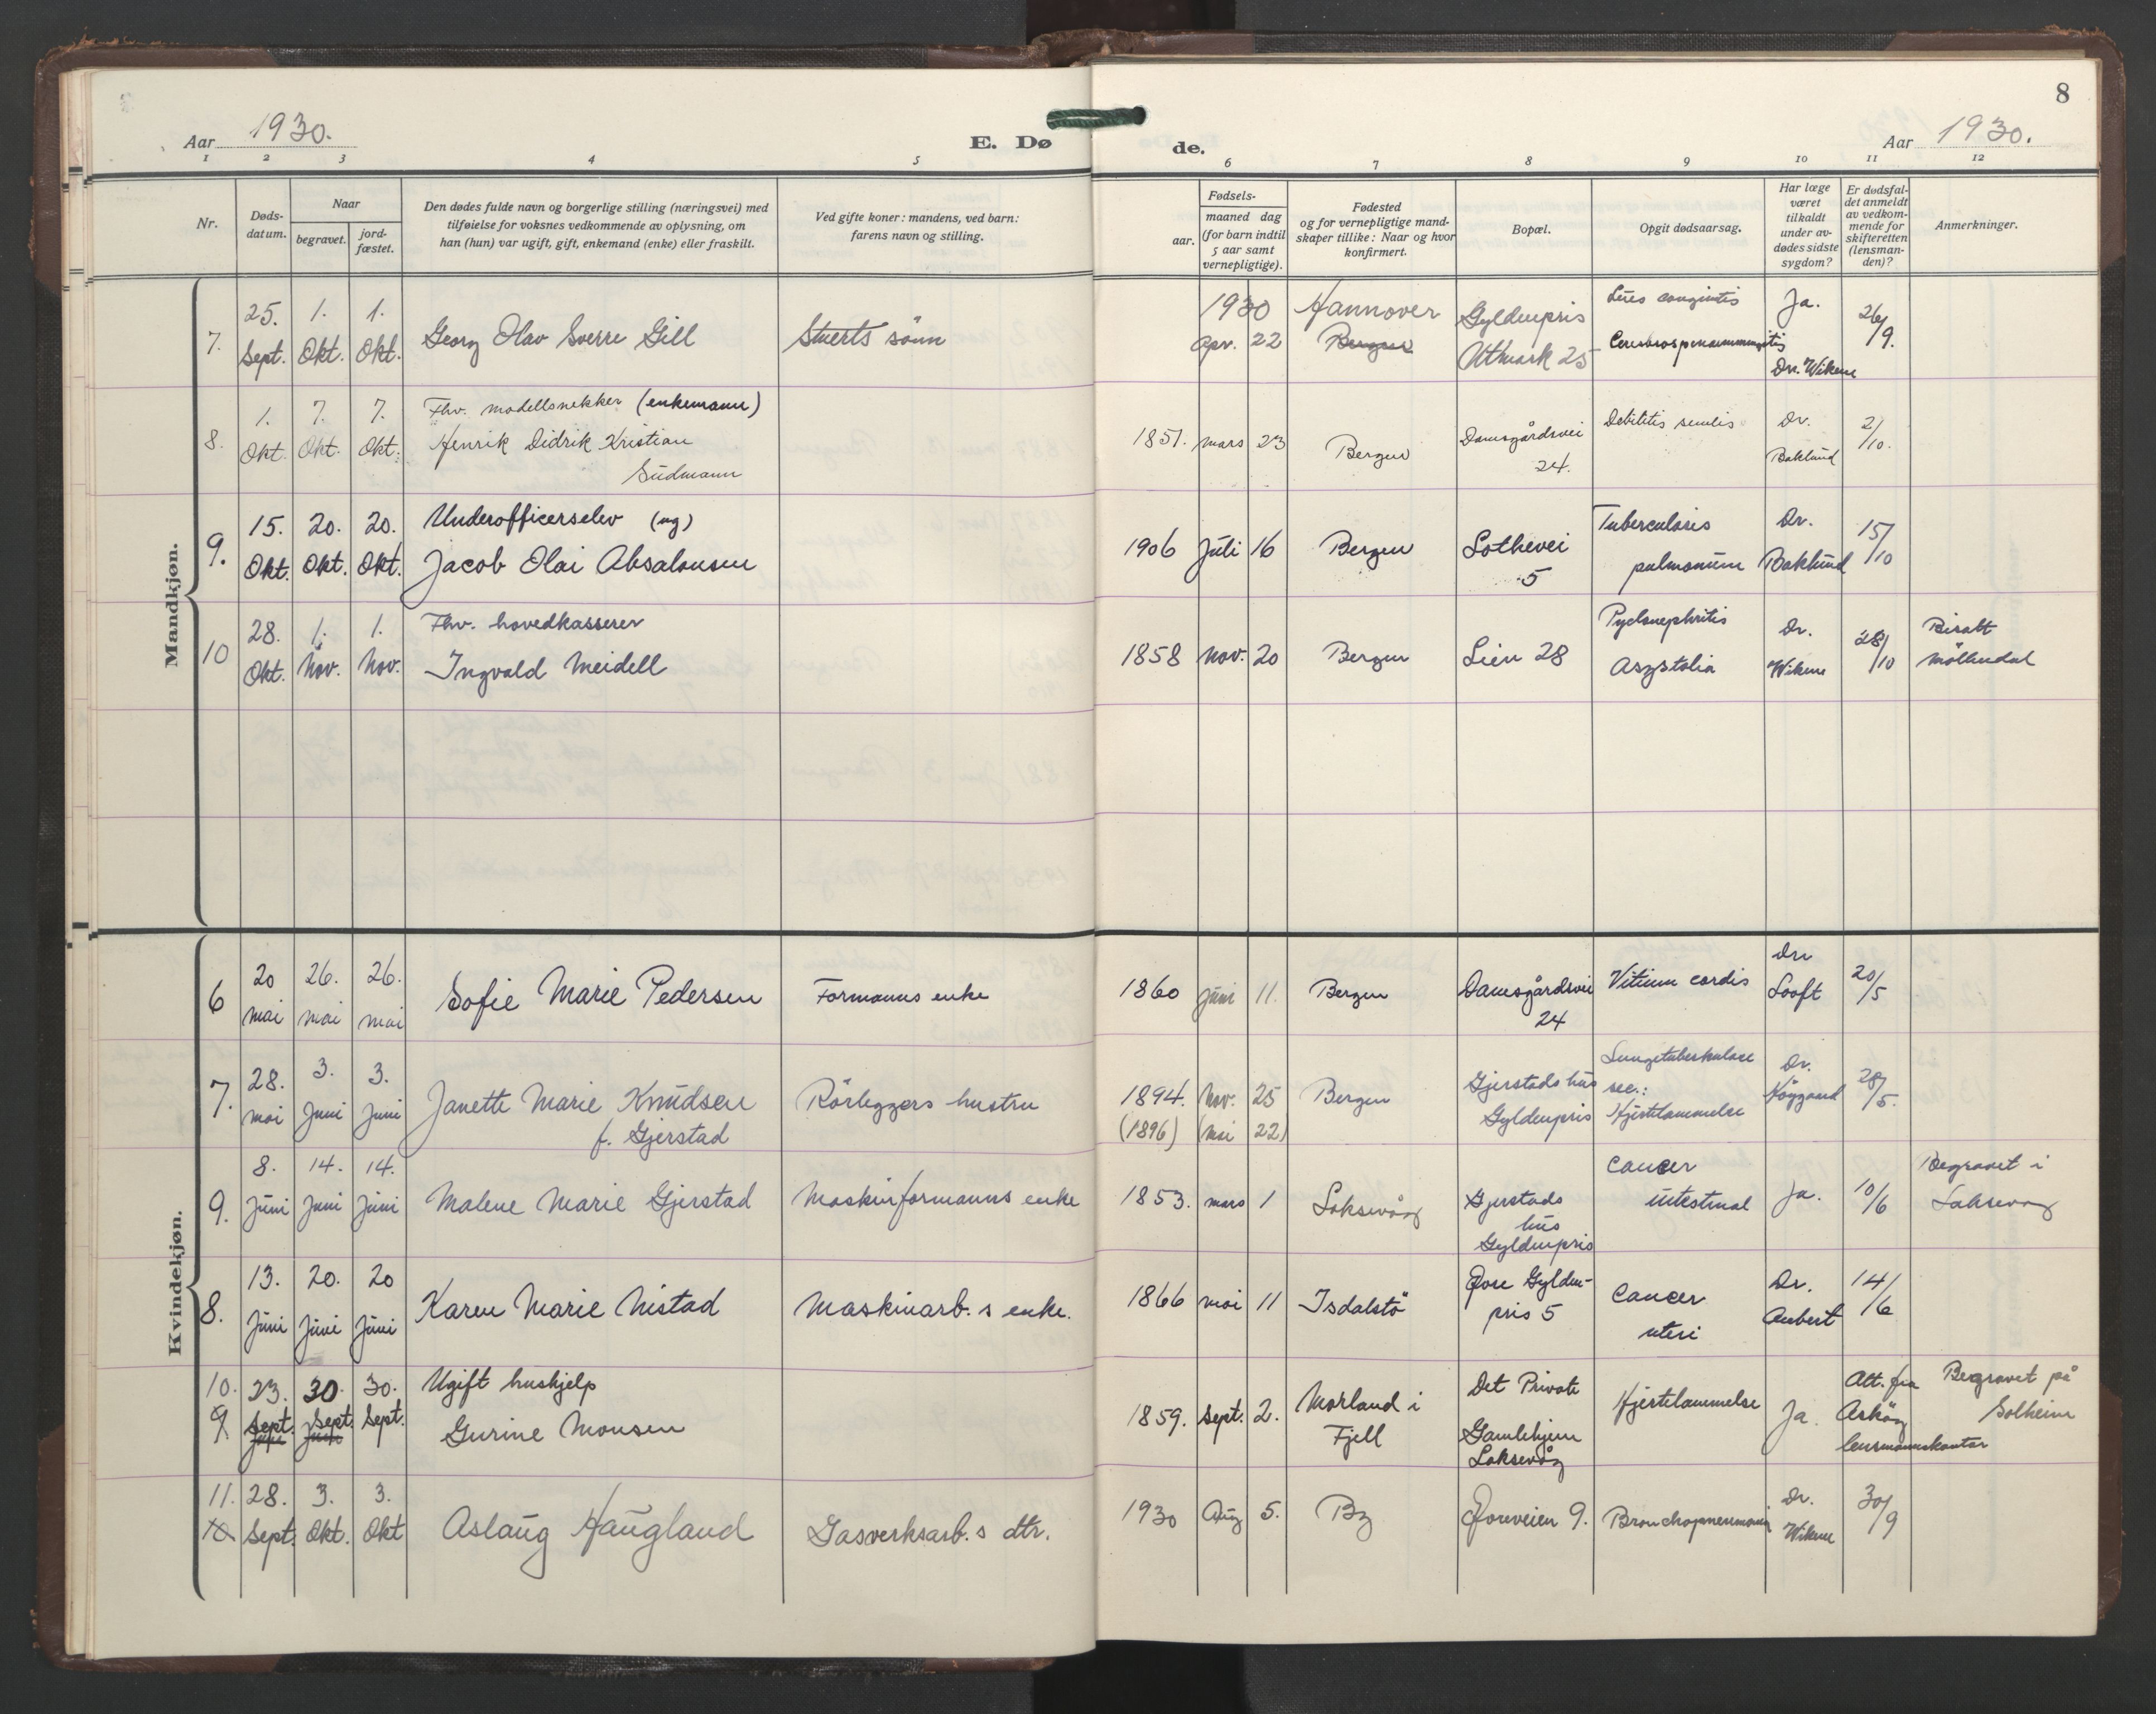 8
Aar 1930.
E. Dø de.
Aar 1930.
1 2 3 4 5 6 7 8 9 10 11 12
Nr.
Døds-
datum.
Naar
begravet.
jord-
fæstet.
Den dødes fulde navn og borgerlige stilling (næringsvei) med
tilføielse for voksnes vedkommende av oplysning, om
han (hun) var ugift, gift, enkemand (enke) eller fraskilt.
Ved gifte koner: mandens, ved barn:
farens navn og stilling.
Fødsels-
aar.
maaned dag
(for barn indtil
5 aar samt
vernepligtige).
Fødested
og for vernepligtige mand-
skaper tillike: Naar og hvor
konfirmert.
Bopæl.
Opgit dødsaarsag.
Har læge
været
tilkaldt
under av-
dødes sidste
sygdom?
Er dødsfal-
det anmeldt
av vedkom-
mende for
skifteretten
(lensman-
den)?
Anmerkninger.
Mandkjøn.
7. 25. Sept. 1. Okt. 1. Okt.
Georg Olav Sverre Gill
Stuerts sönn
1930 Apr. 22
Hannover
Bergen
Gyldenpris
Utmark 25
Lues congintis
Cerebrospinalmeningitis
Ja.
Dr. Wikene
26/9.
8. 1. Okt. 7. Okt. 7. Okt.
Fhv. modellsnekker (enkemann)
Henrik Didrik Kristian
Südmann
1851. mars 23
Bergen
Damsgårdsvei
24.
Debilitis senilis
Dr.
Baklund
2/10.
9. 15. Okt. 20. Okt. 20. Okt.
Underofficerselev (ug)
Jacob Olai Absalonsen
1906 Juli 16
Bergen
Lothevei
5
Tuberculosis
pulmonum
Dr.
Baklund
15/10
10 28. Okt. 1. Nov. 1. Nov.
Fhv. hovedkasserer
Ingvald Meidell
1858 Nov. 20
Bergen
Lien 28
Pyelonephritis
Asystolia
Dr.
Wikene
28/10
Bisatt
Möllendal
Kvindekjøn.
6 20 mai 26. mai 26. mai
Sofie Marie Pedersen
Formanns enke
1860 juni 11.
Bergen
Damsgårdsvei
24
Vitium cordis
Dr.
Looft
20/5
7. 28. mai 3. Juni 3. Juni
Janette Marie Knudsen
f. Gjerstad
Rörleggers hustru
1894. Nov. 25
(1896) (Mai 22)
Bergen
Gjerstads hus
Gyldenpris
Lungetuberkulose
sec.:
Hjertelammelse
Dr.
28/5.
9. 8. Juni 14. Juni 14. Juni
Malene Marie Gjerstad
Maskinformanns enke
1853. mars 1
Laksevåg
Gjerstads
hus
Gyldenpris
Cancer
intestinal
Ja.
10/6
Begravet i
Laksevåg
8. 13. Juni 20. Juni 20 Juni
Karen Marie Nistad
Maskinarb.s enke.
1866 mai 11
Isdalstö
Övre Gylden-
pris 5
Cancer
uteri
Dr.
Aubert
14/6
10. 9 23. Sept. 30. Sept. 30. Sept.
Ugift hushjelp
Gurine Monsen
1859. Sept. 2.
Morland i
Fjell
Det Private
Gamlehjem
Laksevåg
Hjertelammelse
Ja
Att. fra
Asköy
lensmannskontor
Begravet på
Solheim
11. 10 28. Sept. 3. Okt. 3. Okt
Aslaug Haugland
Gasverksarb.s dtr.
1930 Aug 5.
Bg
Joreveien 9.
Bronchopneumonia
Dr.
Wikene
30/9